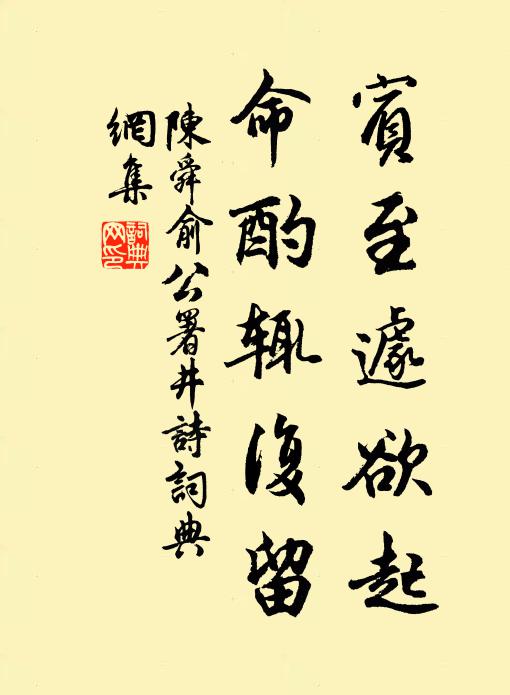 賓至遽欲起
命酌輒復留
陳舜俞公署井詩詞典
網集
詞典網印